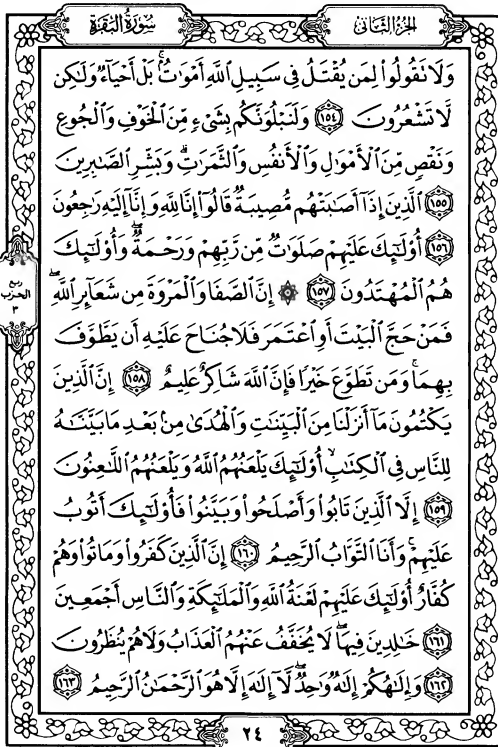 الجزء الثاني
سورة البقرة
وَلَا تَقُولُوا لِمَن يُقْتَلُ فِي سَبِيلِ اللَّهِ أَمْوَاتٌ ۚ بَلْ أَحْيَاءٌ وَلَٰكِن
لَّا تَشْعُرُونَ ١٥٤ وَلَنَبْلُوَنَّكُم بِشَيْءٍ مِّنَ الْخَوْفِ وَالْجُوعِ
وَنَقْصٍ مِّنَ الْأَمْوَالِ وَالْأَنفُسِ وَالثَّمَرَاتِ ۗ وَبَشِّرِ الصَّابِرِينَ
١٥٥ الَّذِينَ إِذَا أَصَابَتْهُم مُّصِيبَةٌ قَالُوا إِنَّا لِلَّهِ وَإِنَّا إِلَيْهِ رَاجِعُونَ
١٥٦ أُولَٰئِكَ عَلَيْهِمْ صَلَوَاتٌ مِّن رَّبِّهِمْ وَرَحْمَةٌ ۖ وَأُولَٰئِكَ
هُمُ الْمُهْتَدُونَ ١٥٧ ۞ إِنَّ الصَّفَا وَالْمَرْوَةَ مِن شَعَائِرِ اللَّهِ ۖ
فَمَنْ حَجَّ الْبَيْتَ أَوِ اعْتَمَرَ فَلَا جُنَاحَ عَلَيْهِ أَن يَطَّوَّفَ
بِهِمَا ۚ وَمَن تَطَوَّعَ خَيْرًا فَإِنَّ اللَّهَ شَاكِرٌ عَلِيمٌ ١٥٨ إِنَّ الَّذِينَ
يَكْتُمُونَ مَا أَنزَلْنَا مِنَ الْبَيِّنَاتِ وَالْهُدَىٰ مِن بَعْدِ مَا بَيَّنَّاهُ
لِلنَّاسِ فِي الْكِتَابِ ۙ أُولَٰئِكَ يَلْعَنُهُمُ اللَّهُ وَيَلْعَنُهُمُ اللَّاعِنُونَ
١٥٩ إِلَّا الَّذِينَ تَابُوا وَأَصْلَحُوا وَبَيَّنُوا فَأُولَٰئِكَ أَتُوبُ
عَلَيْهِمْ ۚ وَأَنَا التَّوَّابُ الرَّحِيمُ ١٦٠ إِنَّ الَّذِينَ كَفَرُوا وَمَاتُوا وَهُمْ
كُفَّارٌ أُولَٰئِكَ عَلَيْهِمْ لَعْنَةُ اللَّهِ وَالْمَلَائِكَةِ وَالنَّاسِ أَجْمَعِينَ
١٦١ خَالِدِينَ فِيهَا ۖ لَا يُخَفَّفُ عَنْهُمُ الْعَذَابُ وَلَا هُمْ يُنظَرُونَ
١٦٢ وَإِلَٰهُكُمْ إِلَٰهٌ وَاحِدٌ ۖ لَّا إِلَٰهَ إِلَّا هُوَ الرَّحْمَٰنُ الرَّحِيمُ ١٦٣
ربع
الحزب
٣
٢٤